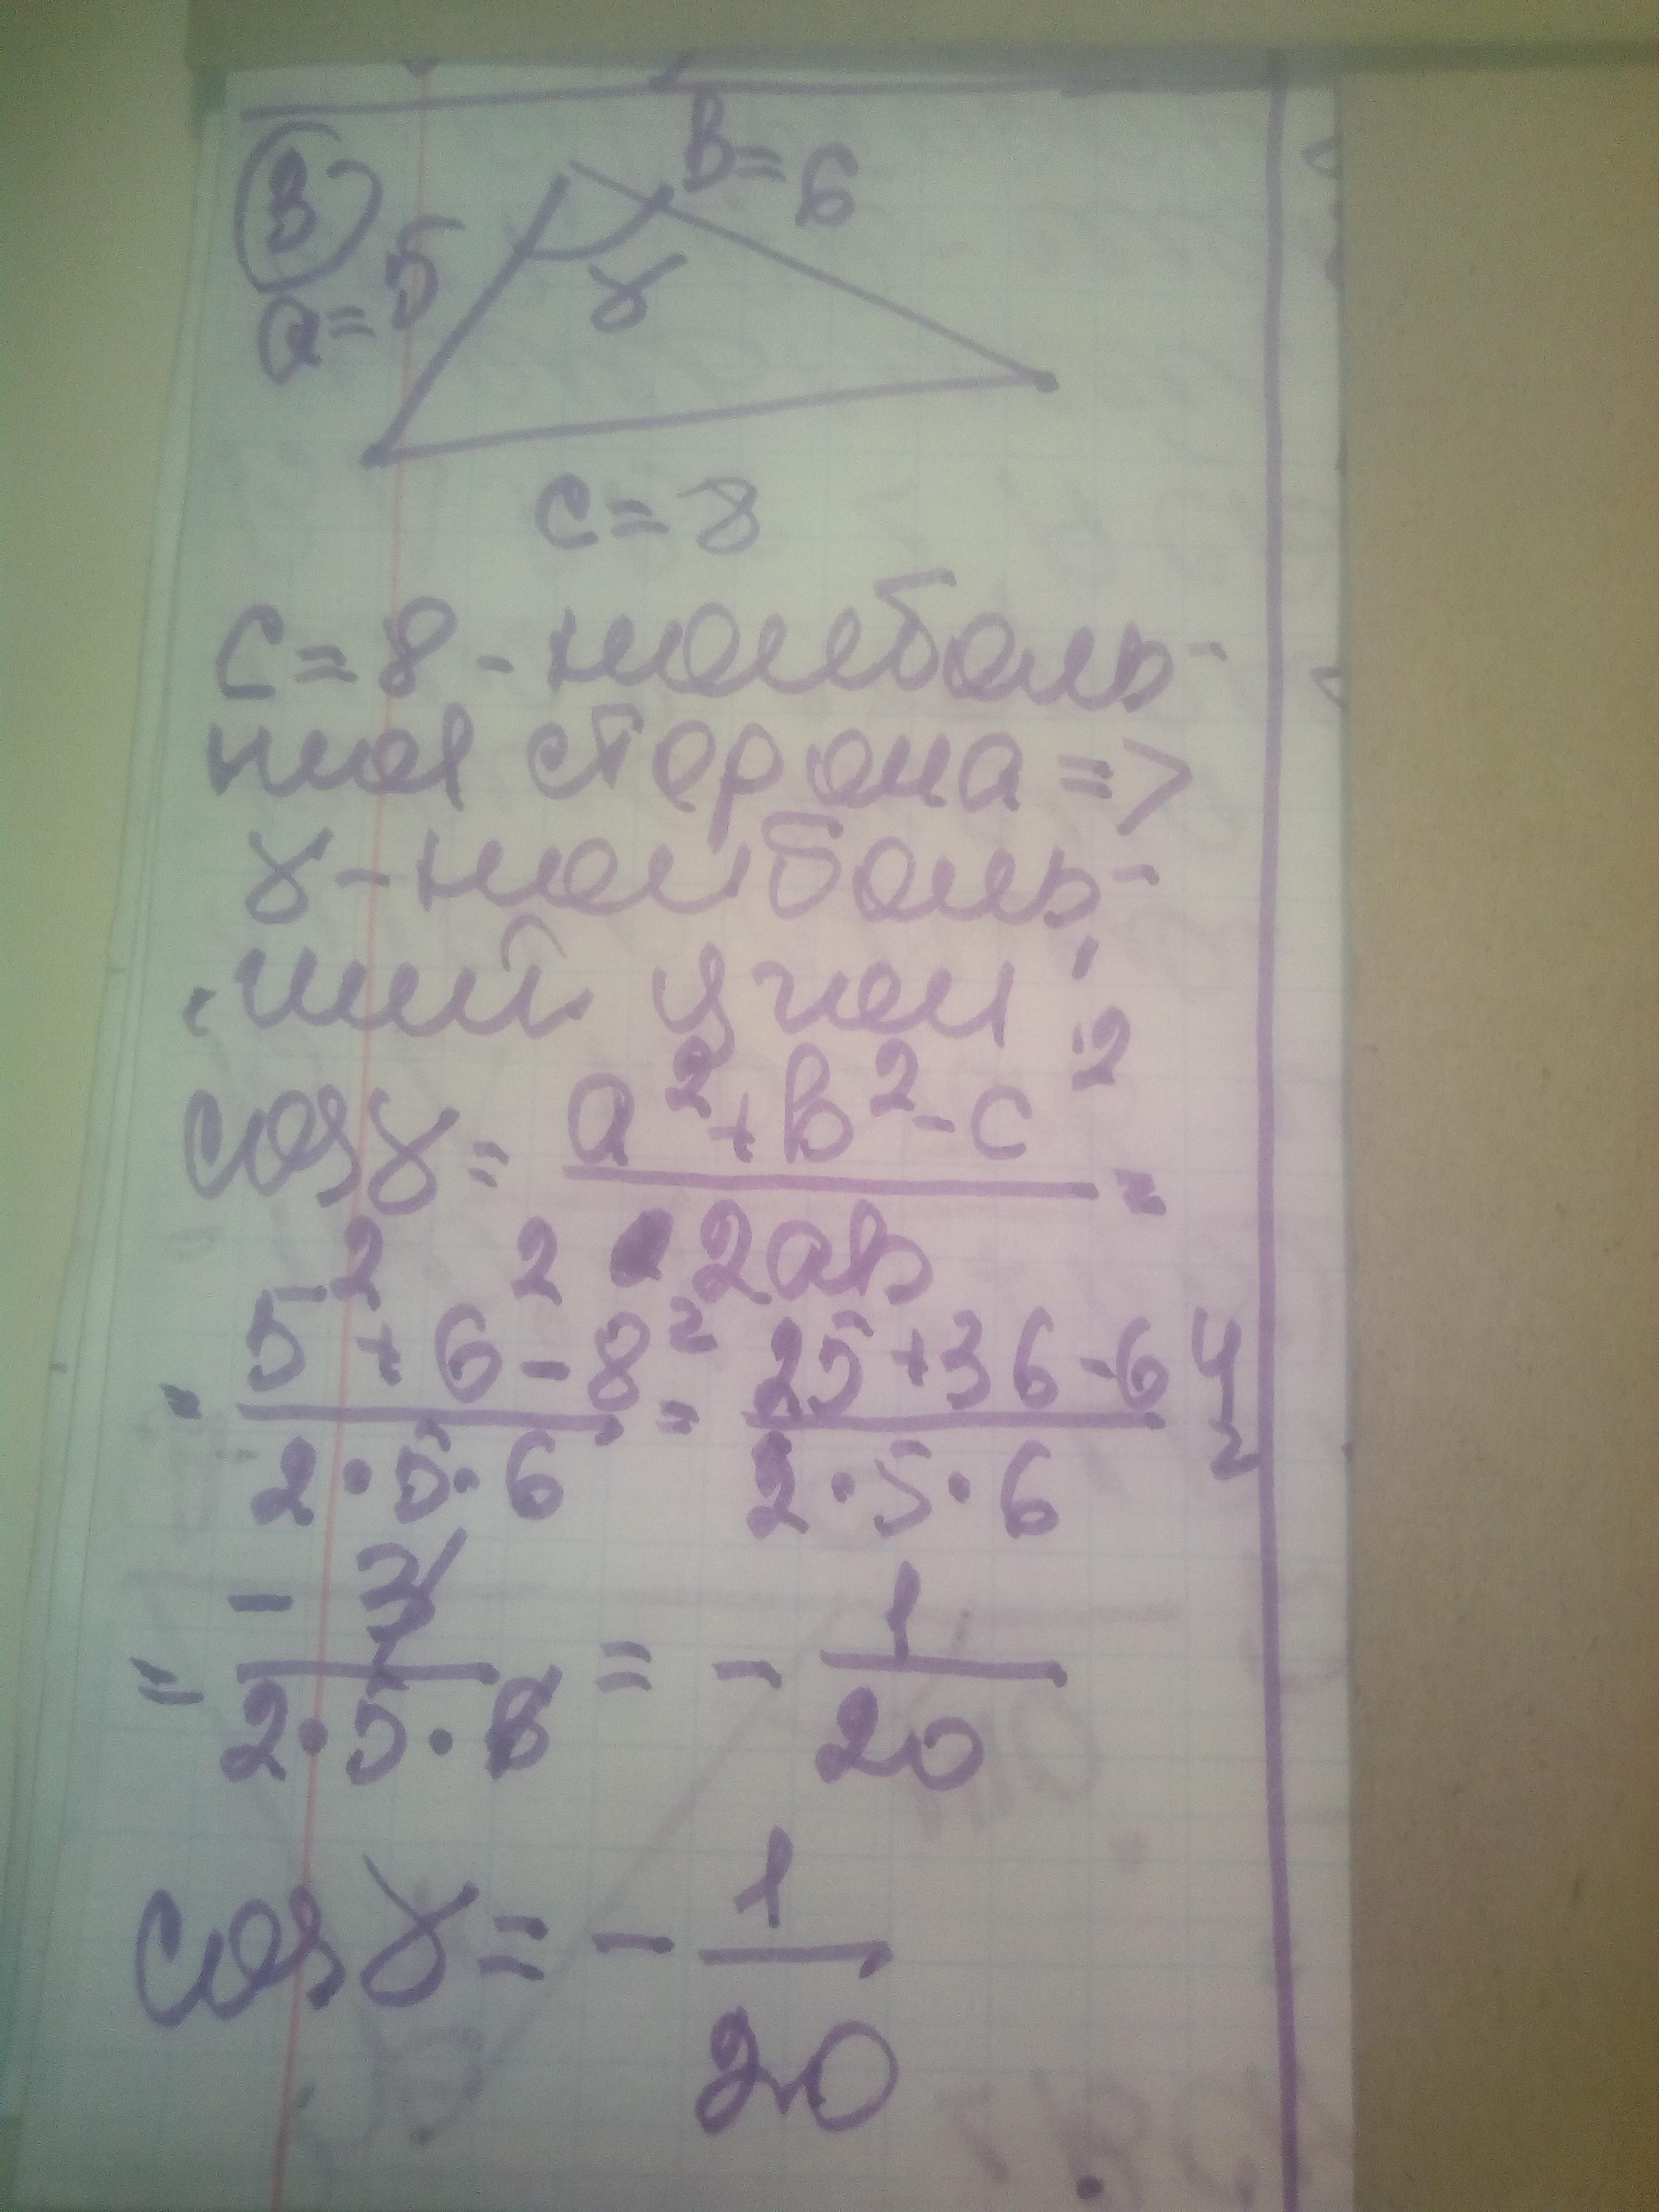 в) b = 6
a = 5
γ
c = 8
c = 8 - наиболь-
шая сторона =>
γ - наиболь-
ший угол!
cosγ = (a² + b² - c²) / 2ab =
= (5² + 6² - 8²) / (2·5·6) = (25 + 36 - 64) / (2·5·6) =
= -3 / (2·5·6) = - 1/20
cosγ = - 1/20